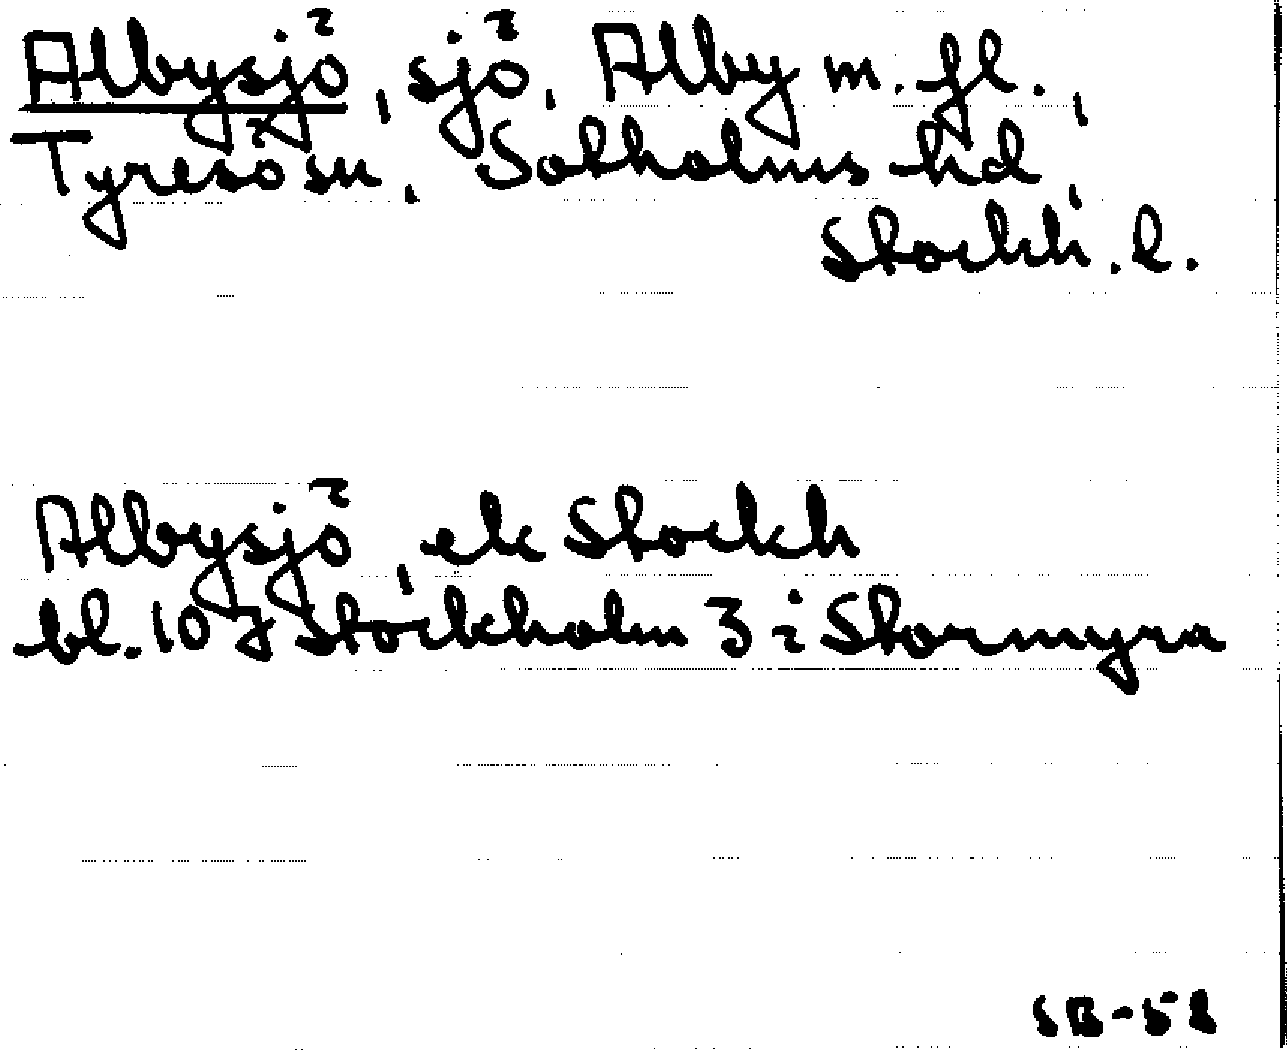 Albysjö, sjö, Alby m. fl.,
Tyresö sn, Sotholms hd,
Stockh. l.
Albysjö, ek Stockh
bl. 10 J Stockholm 3 i Stormyra
SB-58